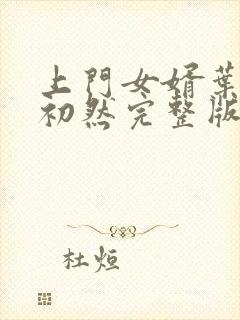 上門女婿葉
初然完整版
杜烜